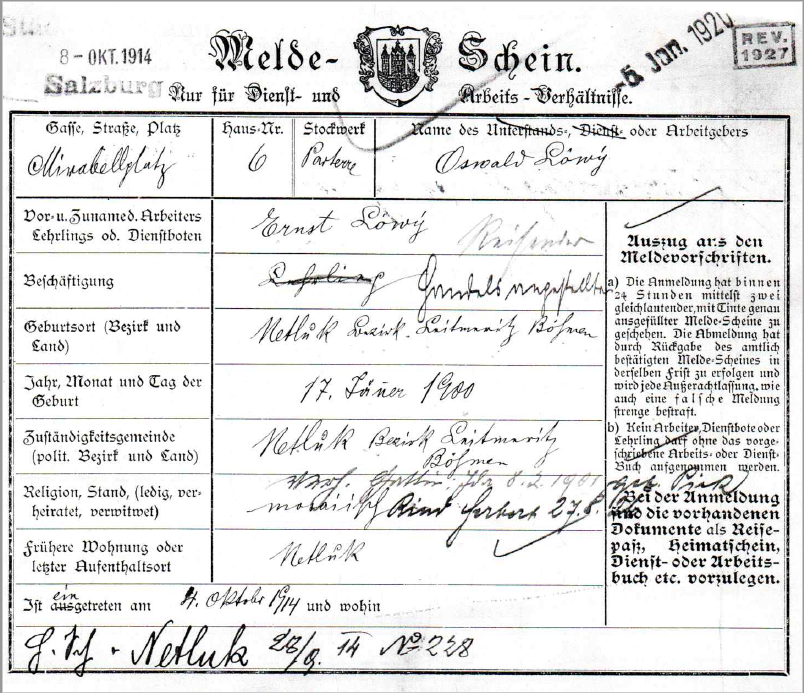 8 - OKT. 1914
Salzburg
Melde- Schein.
5. Jan. 1920
REV. 1927
Nur für Dienst- und Arbeits-Verhältnisse.
Gasse, Straße, Platz
Mirabellplatz
Haus-Nr.
6
Stockwerk
Parterre
Name des Unterstands-, Dienst- oder Arbeitgebers
Oswald Löwy
Vor- u. Zunamed. Arbeiters
Lehrlings od. Dienstboten
Ernst Löwy
Reisender
Beschäftigung
Lehrling Handelsangestellter
Geburtsort (Bezirk und
Land)
Netluk Bezirk. Leitmeritz Böhmen
Jahr, Monat und Tag der
Geburt
17. Jäner 1900
Zuständigkeitsgemeinde
(polit. Bezirk und Land)
Netluk Bezirk Leitmeritz
Böhmen
Religion, Stand, (ledig, ver-
heiratet, verwitwet)
verh. Gattin Ida 8.2.1901 geb. Pick
mosaiisch Kind Herbert 27.8.
Frühere Wohnung oder
letzter Aufenthaltsort
Netluk
Ist ausgetreten am
ein
4. Oktobr 1914 und wohin
Netluk 28/9. 14 No 228
Auszug aus den
Meldevorschriften.
a) Die Anmeldung hat binnen
24 Stunden mittelst zwei
gleichlautender, mit Tinte genau
ausgefüllter Melde-Scheine zu
geschehen. Die Abmeldung hat
durch Rückgabe des amtlich
bestätigten Melde-Scheines in
derselben Frist zu erfolgen und
wird jede Außerachtlassung, wie
auch eine falsche Meldung
strenge bestraft.
b) Kein Arbeiter, Dienstbote oder
Lehrling darf ohne das vorge-
schriebene Arbeits- oder Dienst-
Buch aufgenommen werden.
Bei der Anmeldung
sind die vorhandenen
Dokumente als Reise-
paß, Heimatschein,
Dienst- oder Arbeits-
buch etc. vorzulegen.